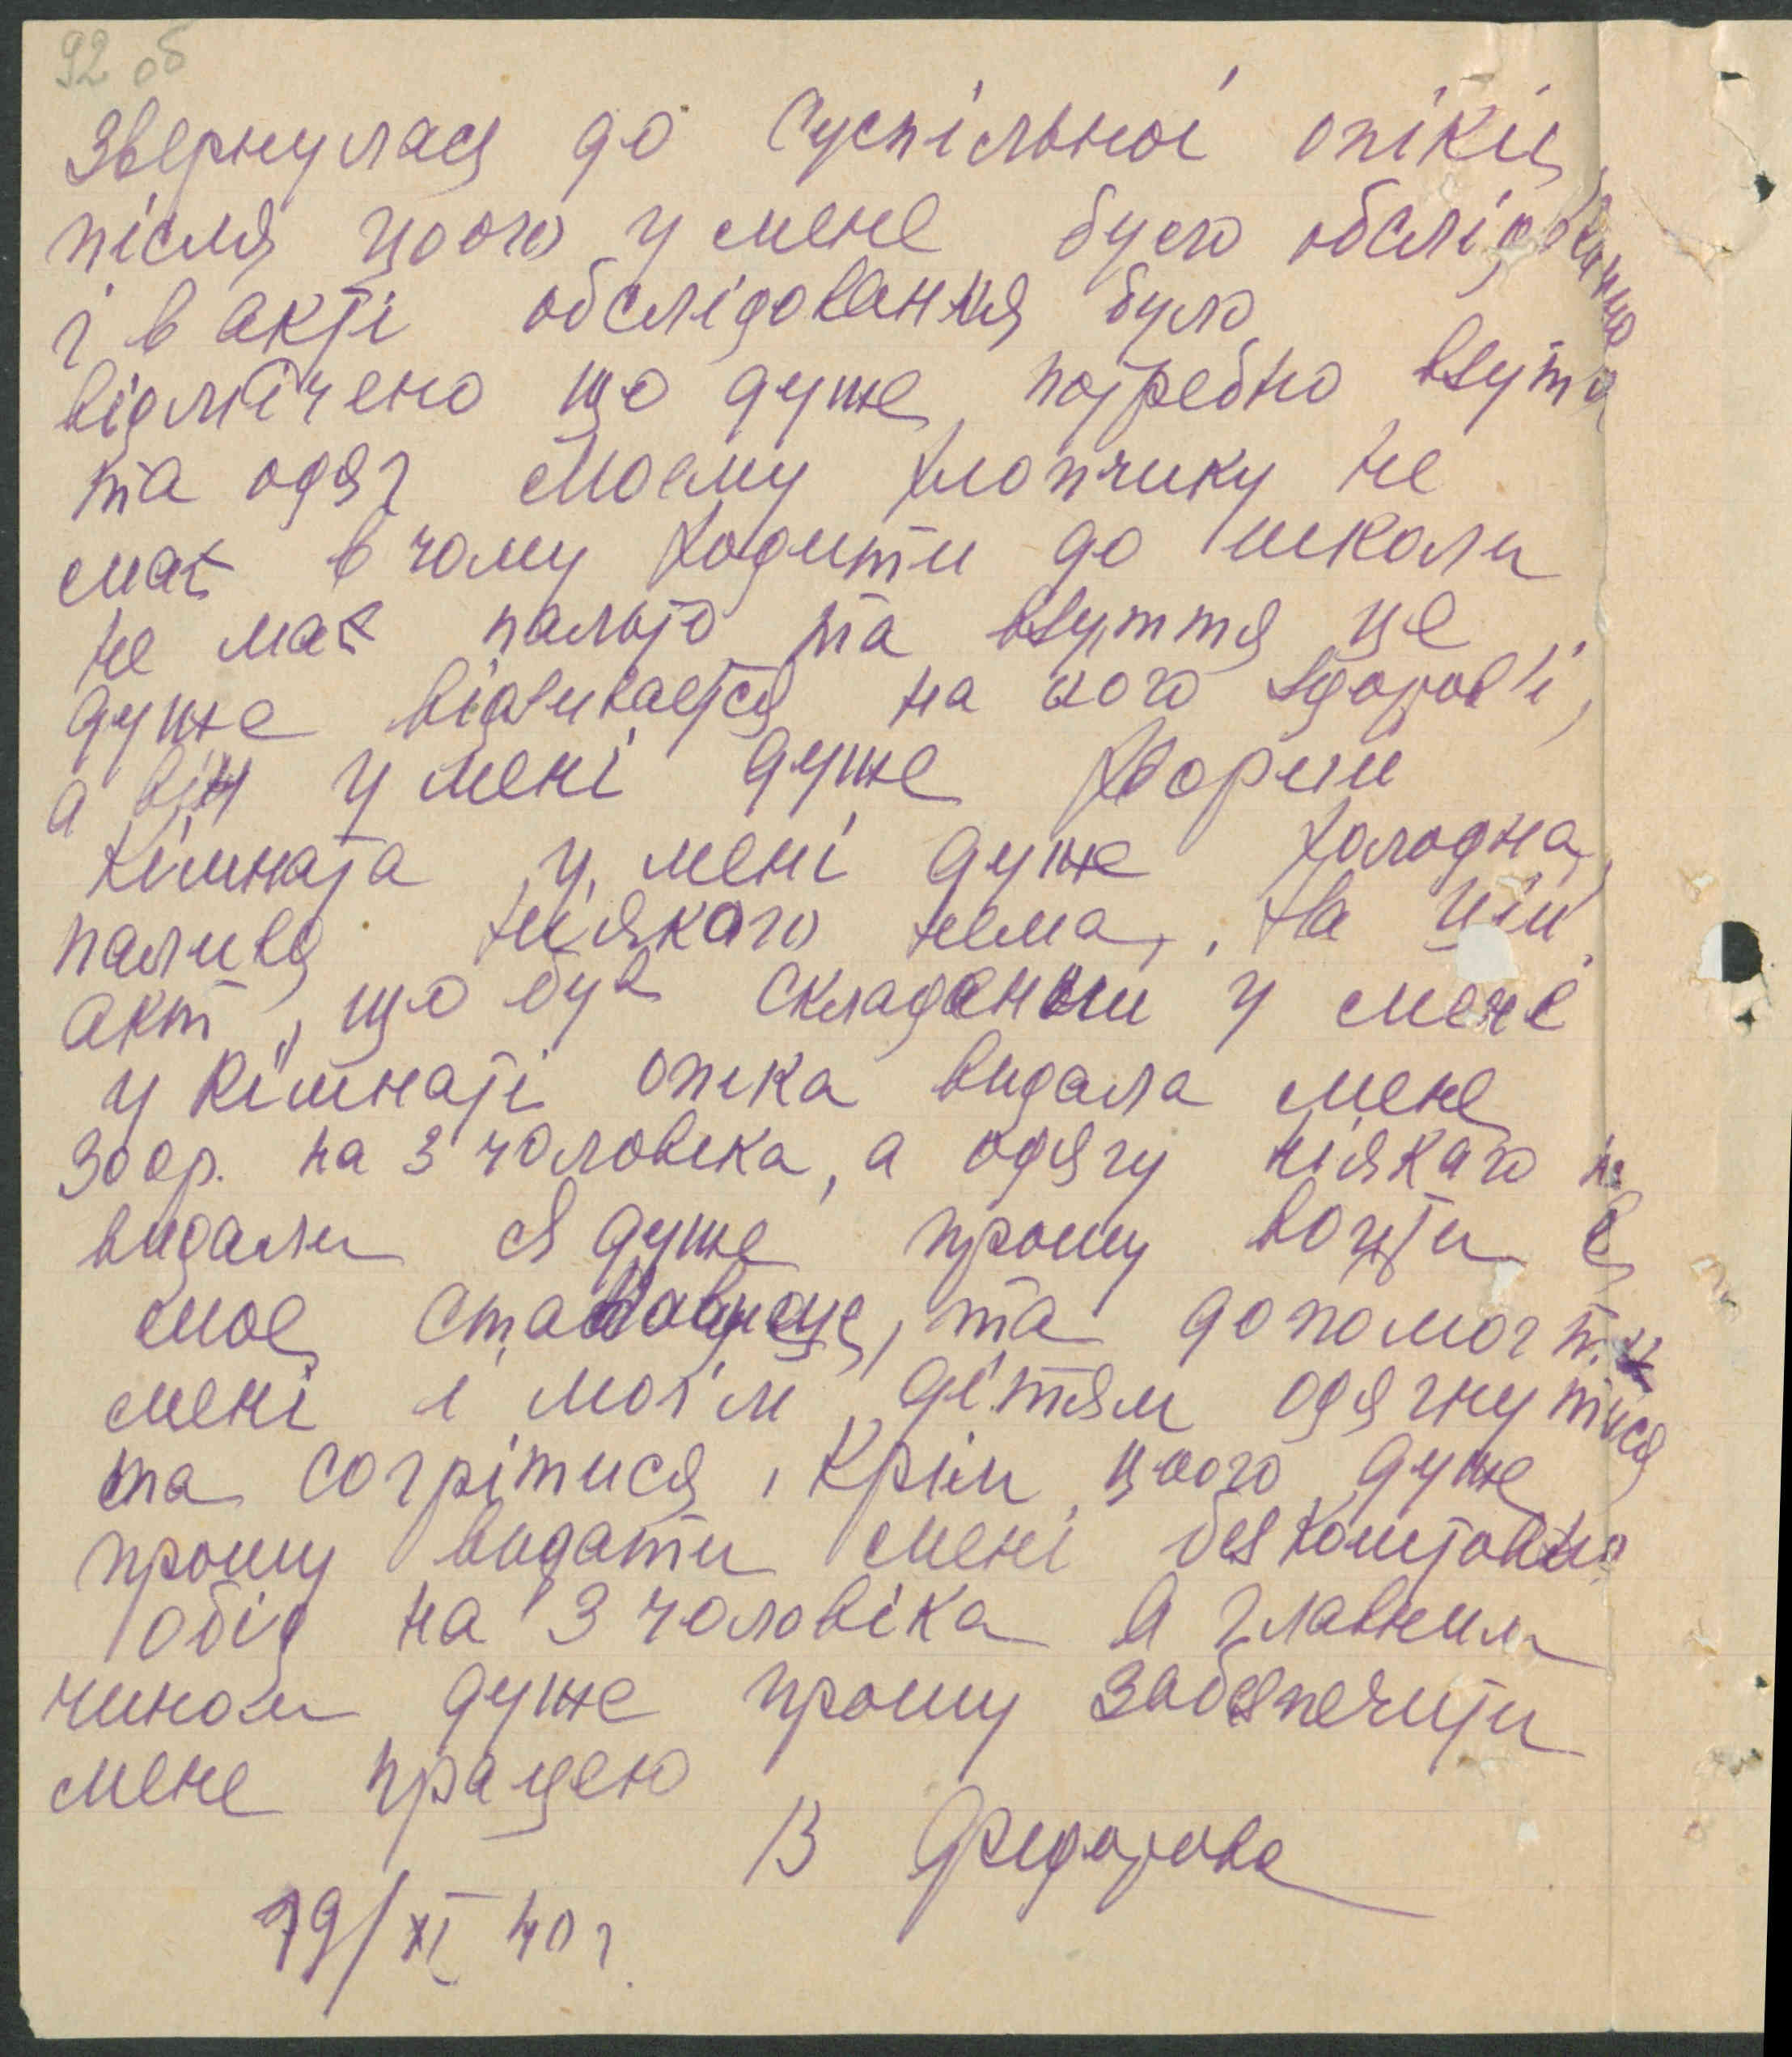 92 об
Звернулася до Суспільної опіки
після цього у мене було обслідування
і в акті обслідования було
відмічено що дуже потребно взута
та одяг Моєму хлопчику не
має в чому ходити до школи
не має пальто та взуття це
дуже відзивается на його здоров'ї,
а він у мені дуже хворий
Кімната у мені дуже холодна,
палива ніякого нема, На цій
акт, що був складений у мене
у кімнаті опіка видала мене
30 ор. на 3 чоловека, а одягу ніякаго не
видали Я дуже прошу войти в
моє та допомогти
мені і моїм дітям одягнутися
та согрітися, Крім цього дуже
прошу видати мені безкоштовно
обід на 3 чоловіка А главним
чином дуже прошу забезпечити
мене працею
В Федорова
19/XI 40 г.